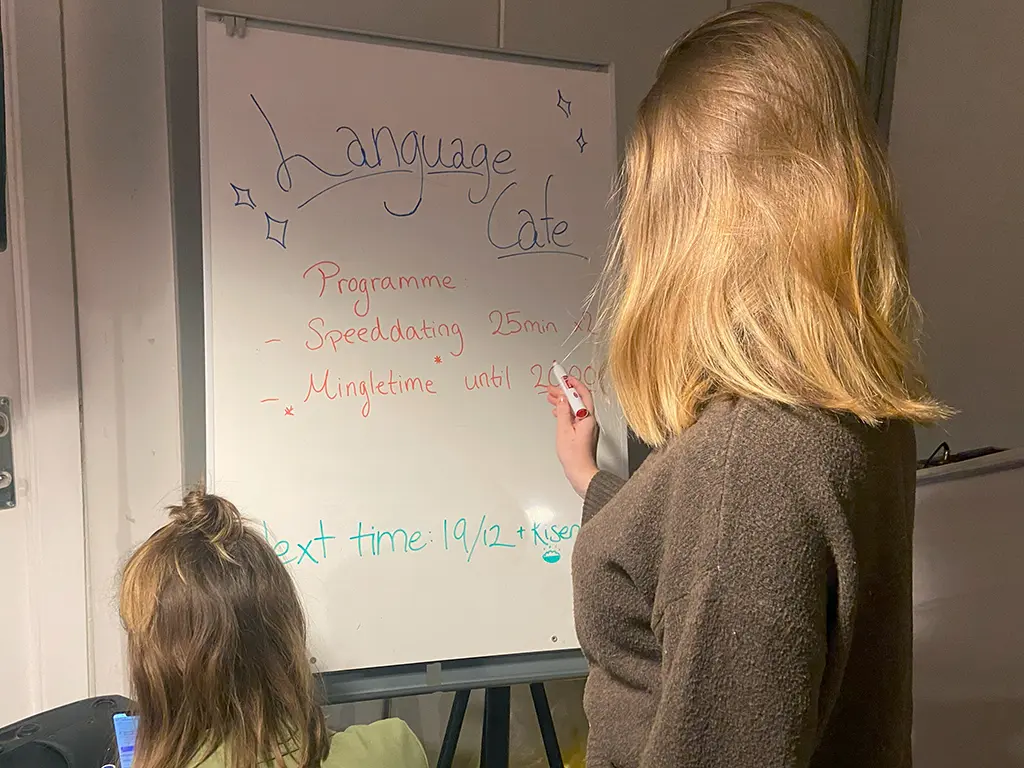 Language
Cafe
Programme
- Speeddating 25min
- *Mingletime* until
time: 19/12 +